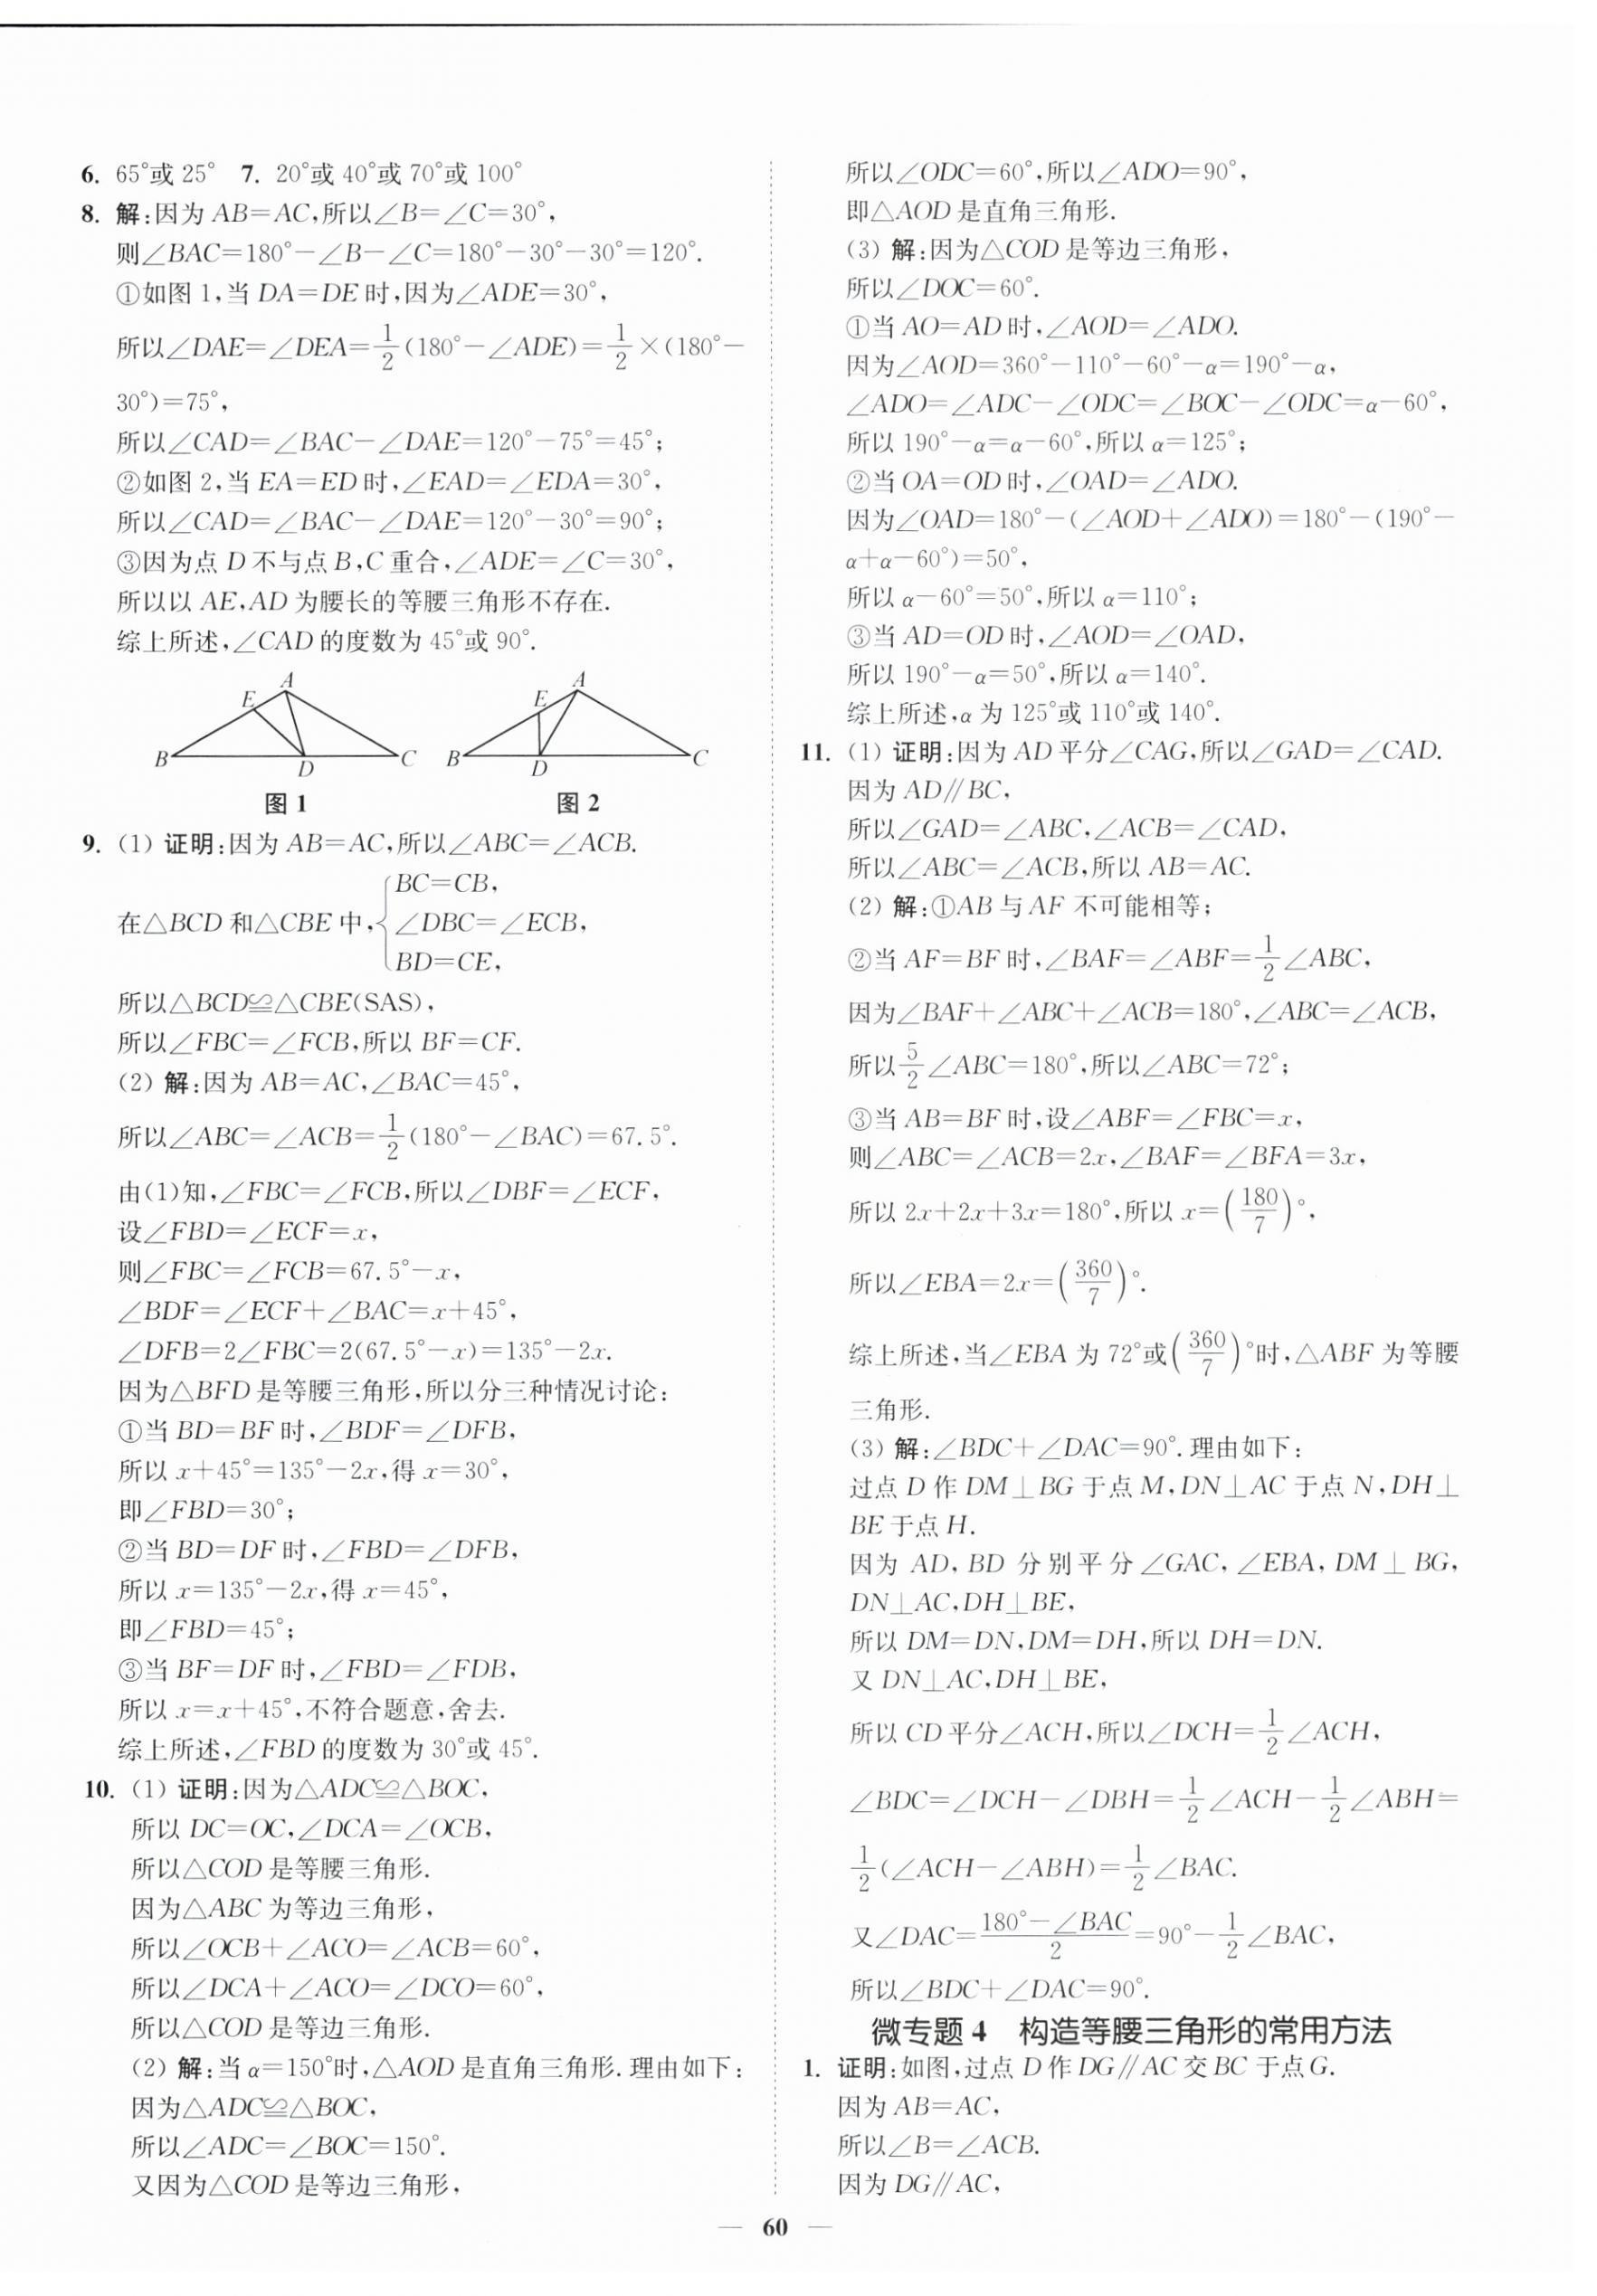 6. 65°或 25°　7. 20°或 40°或 70°或 100°
8. 解:因为 AB=AC,所以∠B=∠C=30°,
则∠BAC=180°-∠B-∠C=180°-30°-30°=120°.
①如图 1,当 DA=DE 时,因为∠ADE=30°,
所以∠DAE=∠DEA=1/2(180°-∠ADE)=1/2×(180°-
30°)=75°,
所以∠CAD=∠BAC-∠DAE=120°-75°=45°;
②如图 2,当 EA=ED 时,∠EAD=∠EDA=30°,
所以∠CAD=∠BAC-∠DAE=120°-30°=90°;
③因为点 D 不与点 B,C 重合,∠ADE=∠C=30°,
所以以 AE,AD 为腰长的等腰三角形不存在.
综上所述,∠CAD 的度数为 45°或 90°.
A E B D C
A E B D C
图 1　图 2
9. (1) 证明:因为 AB=AC,所以∠ABC=∠ACB.
BC=CB,
在△BCD 和△CBE 中,{∠DBC=∠ECB,
BD=CE,
所以△BCD≌△CBE(SAS),
所以∠FBC=∠FCB,所以 BF=CF.
(2) 解:因为 AB=AC,∠BAC=45°,
所以∠ABC=∠ACB=1/2(180°-∠BAC)=67.5°.
由(1)知,∠FBC=∠FCB,所以∠DBF=∠ECF,
设∠FBD=∠ECF=x,
则∠FBC=∠FCB=67.5°-x,
∠BDF=∠ECF+∠BAC=x+45°,
∠DFB=2∠FBC=2(67.5°-x)=135°-2x.
因为△BFD 是等腰三角形,所以分三种情况讨论:
①当 BD=BF 时,∠BDF=∠DFB,
所以 x+45°=135°-2x,得 x=30°,
即∠FBD=30°;
②当 BD=DF 时,∠FBD=∠DFB,
所以 x=135°-2x,得 x=45°,
即∠FBD=45°;
③当 BF=DF 时,∠FBD=∠FDB,
所以 x=x+45°,不符合题意,舍去.
综上所述,∠FBD 的度数为 30°或 45°.
10. (1) 证明:因为△ADC≌△BOC,
所以 DC=OC,∠DCA=∠OCB,
所以△COD 是等腰三角形.
因为△ABC 为等边三角形,
所以∠OCB+∠ACO=∠ACB=60°,
所以∠DCA+∠ACO=∠DCO=60°,
所以△COD 是等边三角形.
(2) 解:当 α=150°时,△AOD 是直角三角形.理由如下:
因为△ADC≌△BOC,
所以∠ADC=∠BOC=150°.
又因为△COD 是等边三角形,
所以∠ODC=60°,所以∠ADO=90°,
即△AOD 是直角三角形.
(3) 解:因为△COD 是等边三角形,
所以∠DOC=60°.
①当 AO=AD 时,∠AOD=∠ADO.
因为∠AOD=360°-110°-60°-α=190°-α,
∠ADO=∠ADC-∠ODC=∠BOC-∠ODC=α-60°,
所以 190°-α=α-60°,所以 α=125°;
②当 OA=OD 时,∠OAD=∠ADO.
因为∠OAD=180°-(∠AOD+∠ADO)=180°-(190°-
α+α-60°)=50°,
所以 α-60°=50°,所以 α=110°;
③当 AD=OD 时,∠AOD=∠OAD,
所以 190°-α=50°,所以 α=140°.
综上所述,α 为 125°或 110°或 140°.
11. (1) 证明:因为 AD 平分∠CAG,所以∠GAD=∠CAD.
因为 AD∥BC,
所以∠GAD=∠ABC,∠ACB=∠CAD,
所以∠ABC=∠ACB,所以 AB=AC.
(2) 解:①AB 与 AF 不可能相等;
②当 AF=BF 时,∠BAF=∠ABF=1/2∠ABC,
因为∠BAF+∠ABC+∠ACB=180°,∠ABC=∠ACB,
所以5/2∠ABC=180°,所以∠ABC=72°;
③当 AB=BF 时,设∠ABF=∠FBC=x,
则∠ABC=∠ACB=2x,∠BAF=∠BFA=3x,
所以 2x+2x+3x=180°,所以 x=(180/7)°,
所以∠EBA=2x=(360/7)°.
综上所述,当∠EBA 为 72°或(360/7)°时,△ABF 为等腰
三角形.
(3) 解:∠BDC+∠DAC=90°.理由如下:
过点 D 作 DM⊥BG 于点 M,DN⊥AC 于点 N,DH⊥
BE 于点 H.
因为 AD,BD 分别平分∠GAC,∠EBA,DM⊥BG,
DN⊥AC,DH⊥BE,
所以 DM=DN,DM=DH,所以 DH=DN.
又 DN⊥AC,DH⊥BE,
所以 CD 平分∠ACH,所以∠DCH=1/2∠ACH,
∠BDC=∠DCH-∠DBH=1/2∠ACH-1/2∠ABH=
1/2(∠ACH-∠ABH)=1/2∠BAC.
又∠DAC=(180°-∠BAC)/2=90°-1/2∠BAC,
所以∠BDC+∠DAC=90°.
微专题 4　构造等腰三角形的常用方法
1. 证明:如图,过点 D 作 DG∥AC 交 BC 于点 G.
因为 AB=AC,
所以∠B=∠ACB.
因为 DG∥AC,
— 60 —